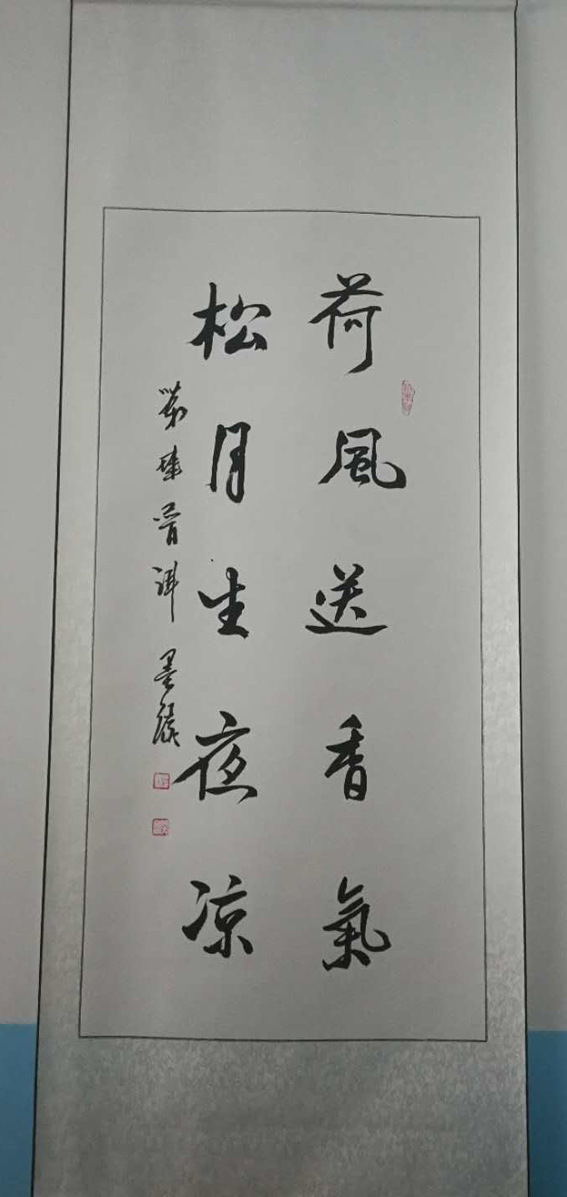 荷風送香氣
松月生夜凉